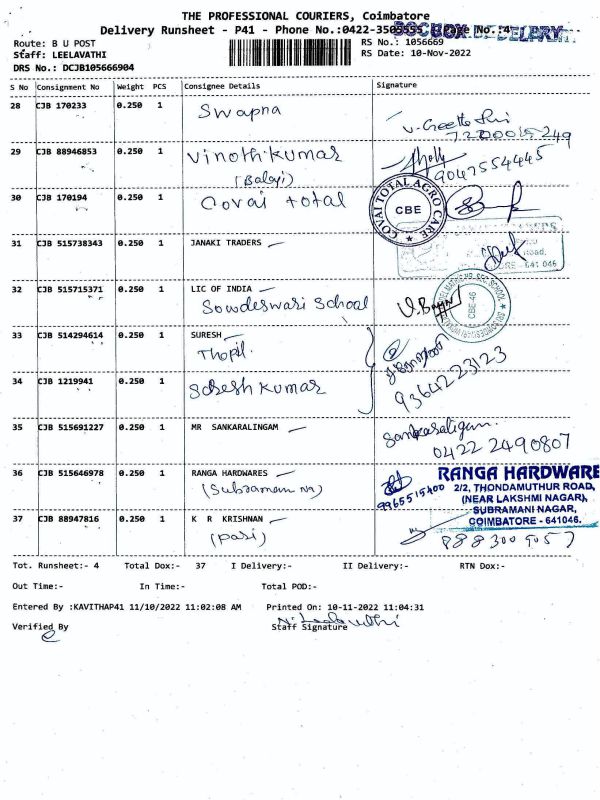 THE PROFESSIONAL COURIERS, Coimbatore
Delivery Runsheet - P41 - Phone No.:0422-3505555 Page No.:4
Route: B U POST
RS No.: 1056669
Staff: LEELAVATHI
RS Date: 10-Nov-2022
DRS No.: DCJB105666904
S No Consignment No Weight PCS Consignee Details Signature
28 CJB 170233 0.250 1 Swapna
V. Geetha
29 CJB 88946853 0.250 1 Vinothkumar
9042554445
(Balaji)
30 CJB 170194 0.250 1 Covai total
COVAI TOTAL AGRO CARE
CBE
31 CJB 515738343 0.250 1 JANAKI TRADERS
641 046
32 CJB 515715371 0.250 1 LIC OF INDIA
Sowdeswari School
CBE-46
33 CJB 514294614 0.250 1 SURESH
Thopil.
34 CJB 1219941 0.250 1 Suresh kumar
9364223123
35 CJB 515691227 0.250 1 MR SANKARALINGAM
Sankaraligam.
0422 2490807
36 CJB 515646978 0.250 1 RANGA HARDWARES
(Subramani Na)
9965515400
RANGA HARDWARE
2/2, THONDAMUTHUR ROAD,
(NEAR LAKSHMI NAGAR),
SUBRAMANI NAGAR,
COIMBATORE - 641046.
37 CJB 88947816 0.250 1 K R KRISHNAN
(Pasi)
Tot. Runsheet:- 4 Total Dox:- 37 I Delivery:- II Delivery:- RTN Dox:-
Out Time:- In Time:- Total POD:-
Entered By :KAVITHAP41 11/10/2022 11:02:08 AM Printed On: 10-11-2022 11:04:31
Verified By
Staff Signature